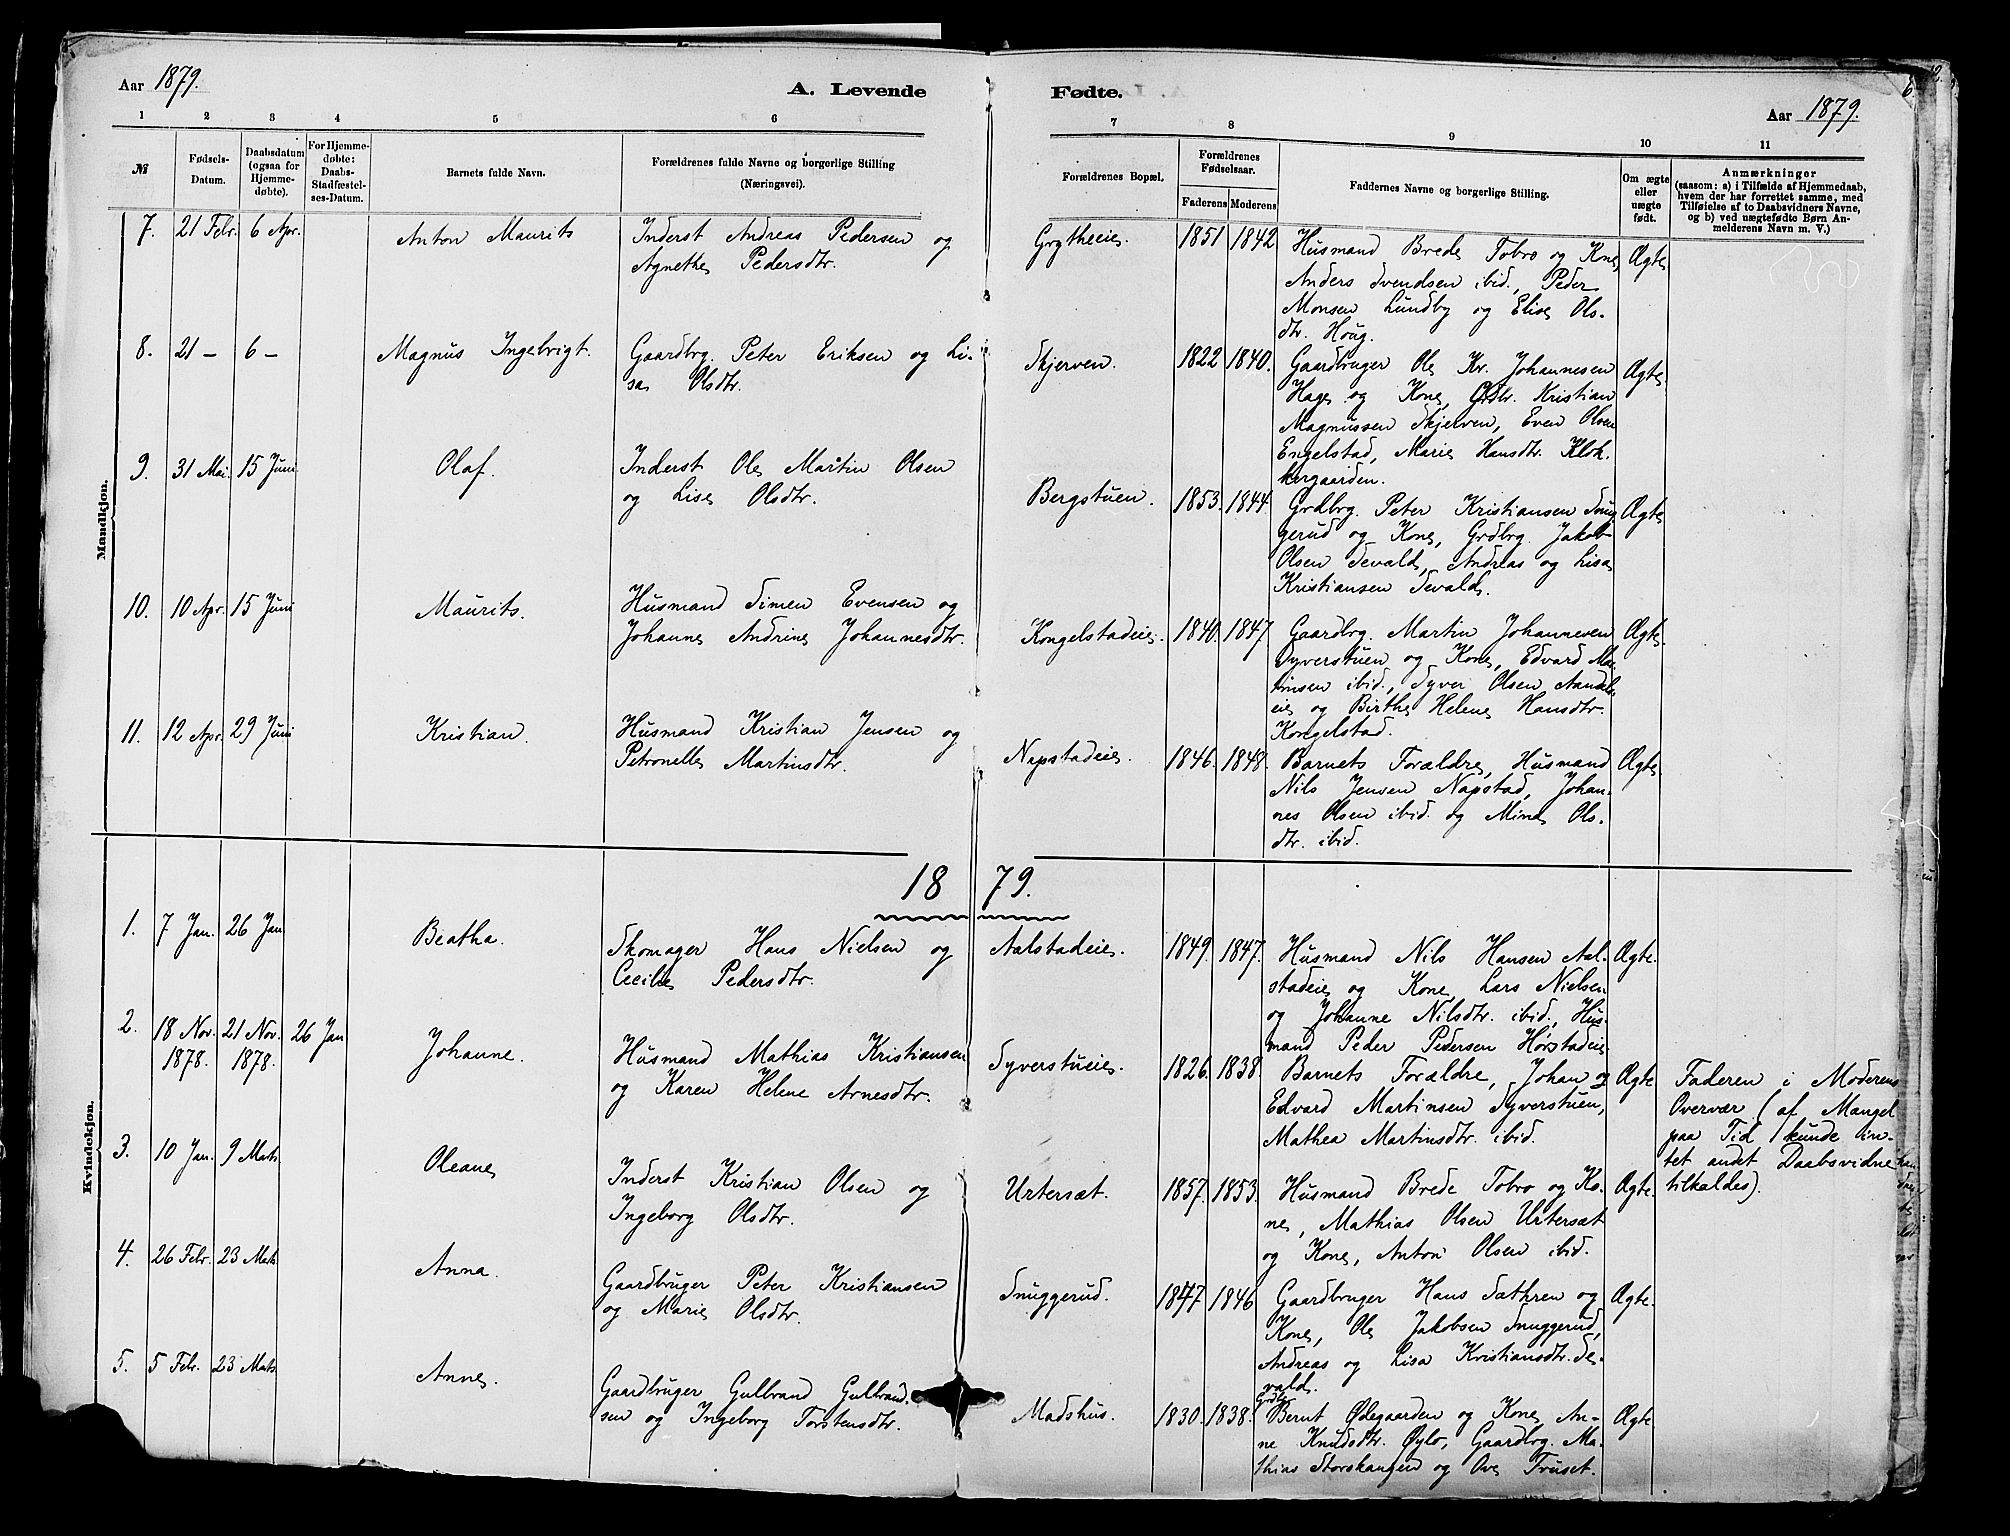 Aar 1879.
A. Levende
Fødte.
Aar 1879.
1 2 3 4 5 6
7 8 9 10 11
№
Fødsels-
Datum.
Daabsdatum
(ogsaa for
Hjemme-
døbte).
For Hjemme-
døbte:
Daabs-
Stadfæstel-
ses-Datum.
Barnets fulde Navn.
Forældrenes fulde Navne og borgerlige Stilling
(Næringsvei).
Forældrenes Bopæl.
Forældrenes
Fødselsaar.
Faderens Moderens
Faddernes Navne og borgerlige Stilling.
Om ægte
eller
uægte
født.
Anmærkninger
(saasom: a) i Tilfælde af Hjemmedaab,
hvem der har forrettet samme, med
Tilføielse af to Daabsvidners Navne,
og b) ved uægtefødte Børn An-
melderens Navn m. V.)
Mandkjøn.
7. 21 Febr. 6 Apr. Anton Maurits
Inderst Andreas Pedersen og
Agnethe Pedersdtr.
Grytheeie. 1851 1842
Husmand Brede Tobro og Kone,
Anders Svendsen ibid., Peder
Monsen Lundby og Elise Ols-
dtr. Houg.
Ægte
8. 21 – 6 – Magnus Ingebrigt.
Gaardbrg. Peter Eriksen og Li-
sa Olsdtr.
Skjerven. 1822 1840.
Gaardbruger Ole Kr. Johannesen
Hage og Kone, Grdbr. Kristian
Magnussen Skjerven, Even Olsen
Engelstad, Marie Hansdtr. Klok-
kergaarden.
Ægte
9. 31 Mai. 15 Juni Olaf.
Inderst Ole Martin Olsen
og Lise Olsdtr.
Bergstuen. 1853. 1844.
Grdbrg. Peter Kristiansen Snug
gerud og Kone, Grdbrg. Jakob
Olsen Sevald, Andreas og Lisa
Kristiansen Sevald.
Ægte
10. 10 Apr. 15 Juni Maurits.
Husmand Simen Evensen og
Johanne Andrine Johannesdtr.
Kongelstadeie. 1840. 1847.
Gaardbrg. Martin Johannesen
Syverstuen og Kone, Edvard Mar-
tinsen ibid., Syver Olsen
eie og Birthe Helene Hansdtr.
Kongelstad.
Ægte.
11. 12 Apr. 29 Juni Kristian.
Husmand Kristian Jensen og
Petronelle Martinsdtr.
Napstadeie. 1846. 1848.
Barnets Forældre, Husmand
Nils Jensen Napstad, Johan-
nes Olsen ibid. og Mina Ols-
dtr. ibid.
Ægte.
1879.
Kvindekjøn.
1. 7 Jan. 26 Jan Beatha.
Skomager Hans Nielsen og
Cecilie Pedersdtr.
Aalstadeie. 1849. 1847.
Husmand Nils Hansen Aal-
stadeie og Kone, Lars Nielsen
og Johanne Nilsdtr. ibid., Hus-
mand Peder Pedersen Hørstadeie
Ægte.
2. 18 Nov. 1878. 21 Nov. 1878. 26 Jan Johanne.
Husmand Mathias Kristiansen
og Karen Helene Arnesdtr.
Syverstueie. 1826. 1838
Barnets Forældre, Johan og
Edvard Martinsen Syverstuen,
Mathea Martinsdtr. ibid.
Ægte
Faderen i Moderens
Overvær (af Mangel
paa Tid kunde in-
tet andet Daabsvidne
tilkaldes).
3. 10 Jan. 9 Marts Oleane
Inderst Kristian Olsen og
Ingeborg Olsdtr.
Urtersæt. 1857. 1853.
Husmand Brede Tobro og Ko-
ne, Mathias Olsen Urtersæt
og Kone, Anton Olsen ibid.
Ægte.
4. 26 Febr. 23 Marts Anna.
Gaardbruger Peter Kristiansen
og Marie Olsdtr.
Snuggerud. 1847 1846
Gaardbruger Hans Sæthren og
Kone, Ole Jakobsen Snuggerud,
Andreas og Lisa Kristiansdtr. Se-
vald.
Ægte.
5. 5 Febr. 23 Marts Anne.
Gaardbruger Gulbrand Gulbrand-
sen og Ingeborg Torstensdtr.
Madshus. 1830. 1838.
Grdbr.
Bernt Ødegaarden og Kone, An-
ne Knudsdtr. Øylo, Gaardbrg. Ma-
thias Storskangen og Ove Truset.
Ægte.